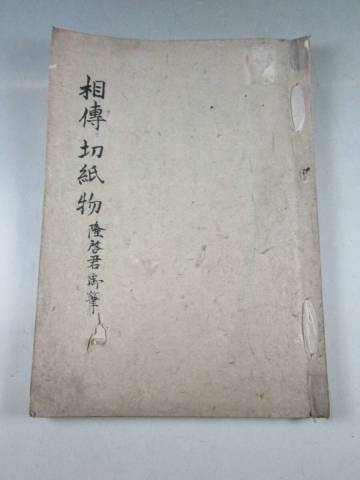 相傳切紙物 隆啓君御筆